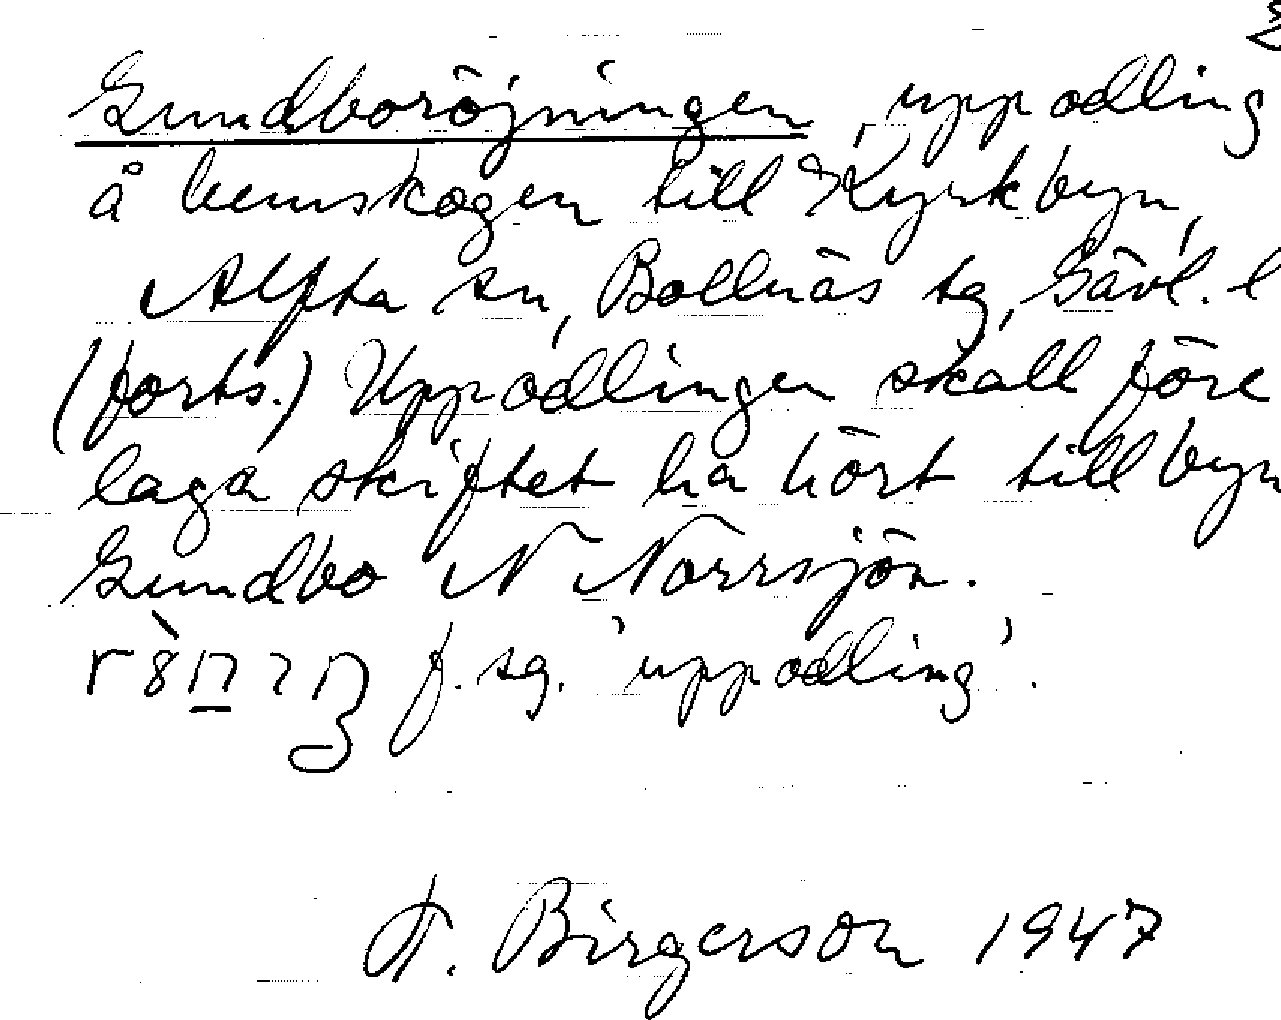 2
Gundboröjningen, uppodling
å hemskogen till Kyrkbyn,
Alfta sn, Bollnäs tg, Gävl. l
(forts.) Uppodlingen skall före
laga skiftet ha hört till byn
Gundbo N Norrsjön.
f. sg. 'uppodling'.
F. Birgerson 1947